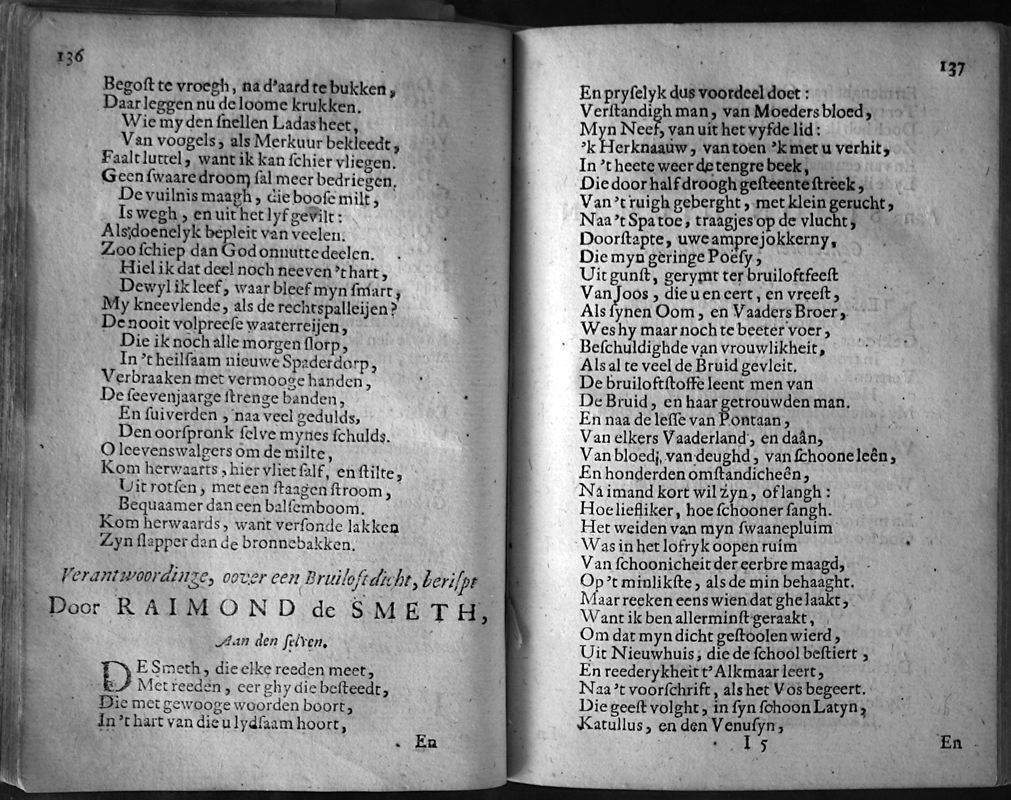 136
Begoſt te vroegh, na d'aard te bukken,
Daar leggen nu de loome krukken.
Wie my den ſnellen Ladas heet,
Van voogels, als Merkuur bekleedt,
Faalt luttel, want ik kan ſchier vliegen.
Geen ſwaare droom ſal meer bedriegen.
De vuilnis maagh, die booſe milt,
Is wegh, en uit het lyf gevilt:
Als doenelyk bepleit van veelen.
Zoo ſchiep dan God onnutte deelen.
Hiel ik dat deel noch neeven 't hart,
Dewyl ik leef, waar bleef myn ſmart,
My kneevlende, als de rechtspalleijen?
De nooit volpreeſe waaterreijen,
Die ik noch alle morgen ſlorp,
In 't heilſaam nieuwe Spaderdorp,
Verbraaken met vermooge handen,
De ſeevenjaarge ſtrenge banden,
En ſuiverden, naa veel gedulds,
Den oorſpronk ſelve mynes ſchulds.
O leevenswalgers om de milte,
Kom herwaarts, hier vliet ſalf, en ſtilte,
Uit rotſen, met een ſtaagen ſtroom,
Bequaamer dan een balſemboom.
Kom herwaards, want verſonde lakken
Zyn ſlapper dan de bronnebakken.
Verantwoordinge, oover een Bruiloftdicht, beriſpt
Door RAIMOND de SMETH,
Aan den ſelven.
DE Smeth, die elke reeden meet,
Met reeden, eer ghy die beſteedt,
Die met gewooge woorden boort,
In 't hart van die u lydſaam hoort,
En
137
En pryſelyk dus voordeel doet:
Verſtandigh man, van Moeders bloed,
Myn Neef, van uit het vyfde lid:
'k Herknaauw, van toen 'k met u verhit,
In 't heete weer de tengre beek,
Die door half droogh geſteente ſtreek,
Van 't ruigh geberght, met klein gerucht,
Naa 't Spa toe, traagjes op de vlucht,
Doorſtapte, uwe ampre jokkerny,
Die myn geringe Poëſy,
Uit gunſt, gerymt ter bruiloftfeeſt
Van Joos, die u en eert, en vreeſt,
Als ſynen Oom, en Vaaders Broer,
Wes hy maar noch te beeter voer,
Beſchuldighde van vrouwlikheit,
Als al te veel de Bruid gevleit.
De bruiloftſtoffe leent men van
De Bruid, en haar getrouwden man.
En naa de leſſe van Pontaan,
Van elkers Vaaderland, en daân,
Van bloed, van deughd, van ſchoone leên,
En honderden omſtandicheên,
Na imand kort wil zyn, of langh:
Hoe liefliker, hoe ſchooner ſangh.
Het weiden van myn ſwaanepluim
Was in het lofryk oopen ruim
Van ſchoonicheit der eerbre maagd,
Op 't minlikſte, als de min behaaght.
Maar reeken eens wien dat ghe laakt,
Want ik ben allerminſt geraakt,
Om dat myn dicht geſtoolen wierd,
Uit Nieuwhuis, die de ſchool beſtiert,
En reederykheit t'Alkmaar leert,
Naa 't voorſchrift, als het Vos begeert.
Die geeſt volght, in ſyn ſchoon Latyn,
Katullus, en den Venuſyn,
I 5
En